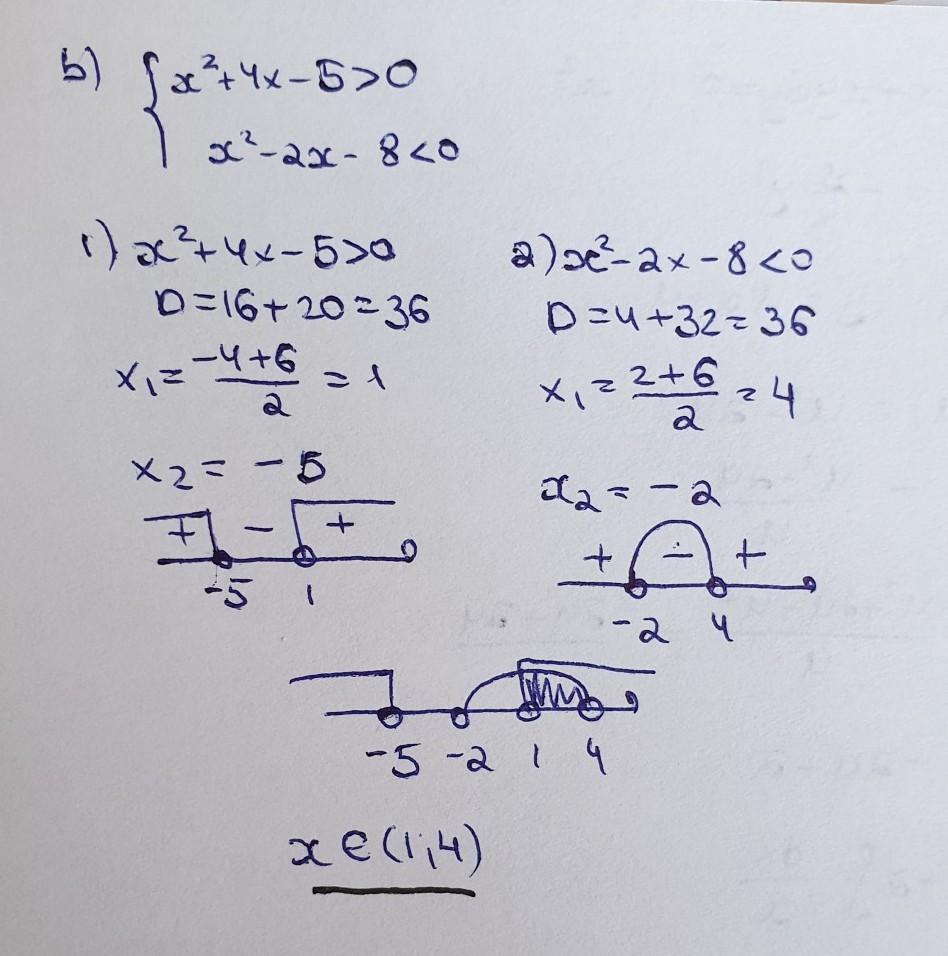 b) { x²+4x-5>0
x²-2x-8<0
1) x²+4x-5>0
D=16+20=36
x₁=(-4+6)/2=1
x₂=-5
+ - +
-5 1
2) x²-2x-8<0
D=4+32=36
x₁=(2+6)/2=4
x₂=-2
+ - +
-2 4
-5 -2 1 4
x∈(1;4)